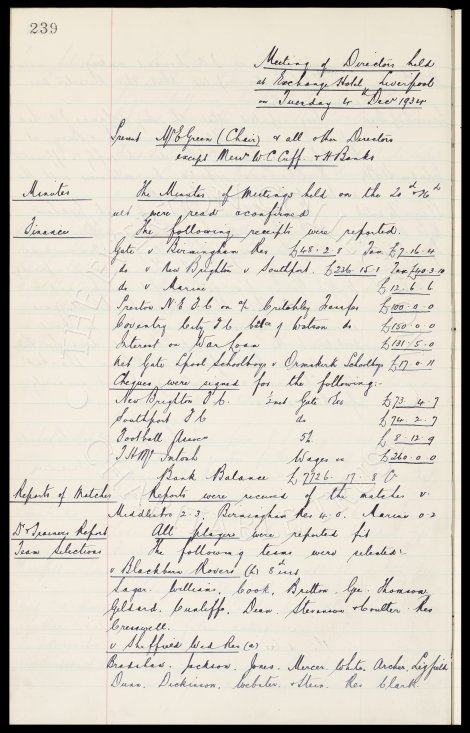 239
Meeting of Directors held
at Exchange Hotel Liverpool
on Tuesday 4th Decr 1934
Present Mr E Green (Chair) & all other Directors
except Messrs W C Cuff & H Banks
Minutes
The Minutes of Meetings held on the 20th & 26th
ult were read & confirmed
Finance
The following receipts were reported.
Gate v Birmingham Res £48. 2. 8 Tax £7. 16. 4
do v New Brighton v Southport. £236. 15. 1 Tax £40. 3. 10
do v Marine £12. 6. 6
Preston N. E F C on a/c Critchley Transfer £100. 0. 0
Coventry City F C of Watson do £150. 0. 0
Interest on War Loan £131. 5. 0
Net Gate Lpool Schoolboys v Ormskirk Schoolboys £17. 0. 11
Cheques were signed for the following:-
New Brighton F C. Net Gate Res £73. 4. 7
Southport F C do £74. 2. 7
Football Assocn 5% £8. 12. 9
T H McIntosh Wages a/c £260. 0. 0
Bank Balance £7726. 17. 8
Reports of Matches
Reports were received of the matches v
Middlesbro 2. 3. Birmingham Res 4. 0. Marine 0. 2
Dr & Trainers Report
All players were reported fit
Team Selections
The following teams were selected:-
v Blackburn Rovers (h) 8th inst
Sagar. Williams, Cook, Britton. Gee. Thomson.
Geldard. Cunliffe, Dean, Stevenson & Coulter. Res
Cresswell.
v Sheffield Wed Res (a)
Bradshaw. Jackson. Jones. Mercer. White, Archer, Leyfield
Dunn. Dickinson. Webster. & Stein. Res Clark.